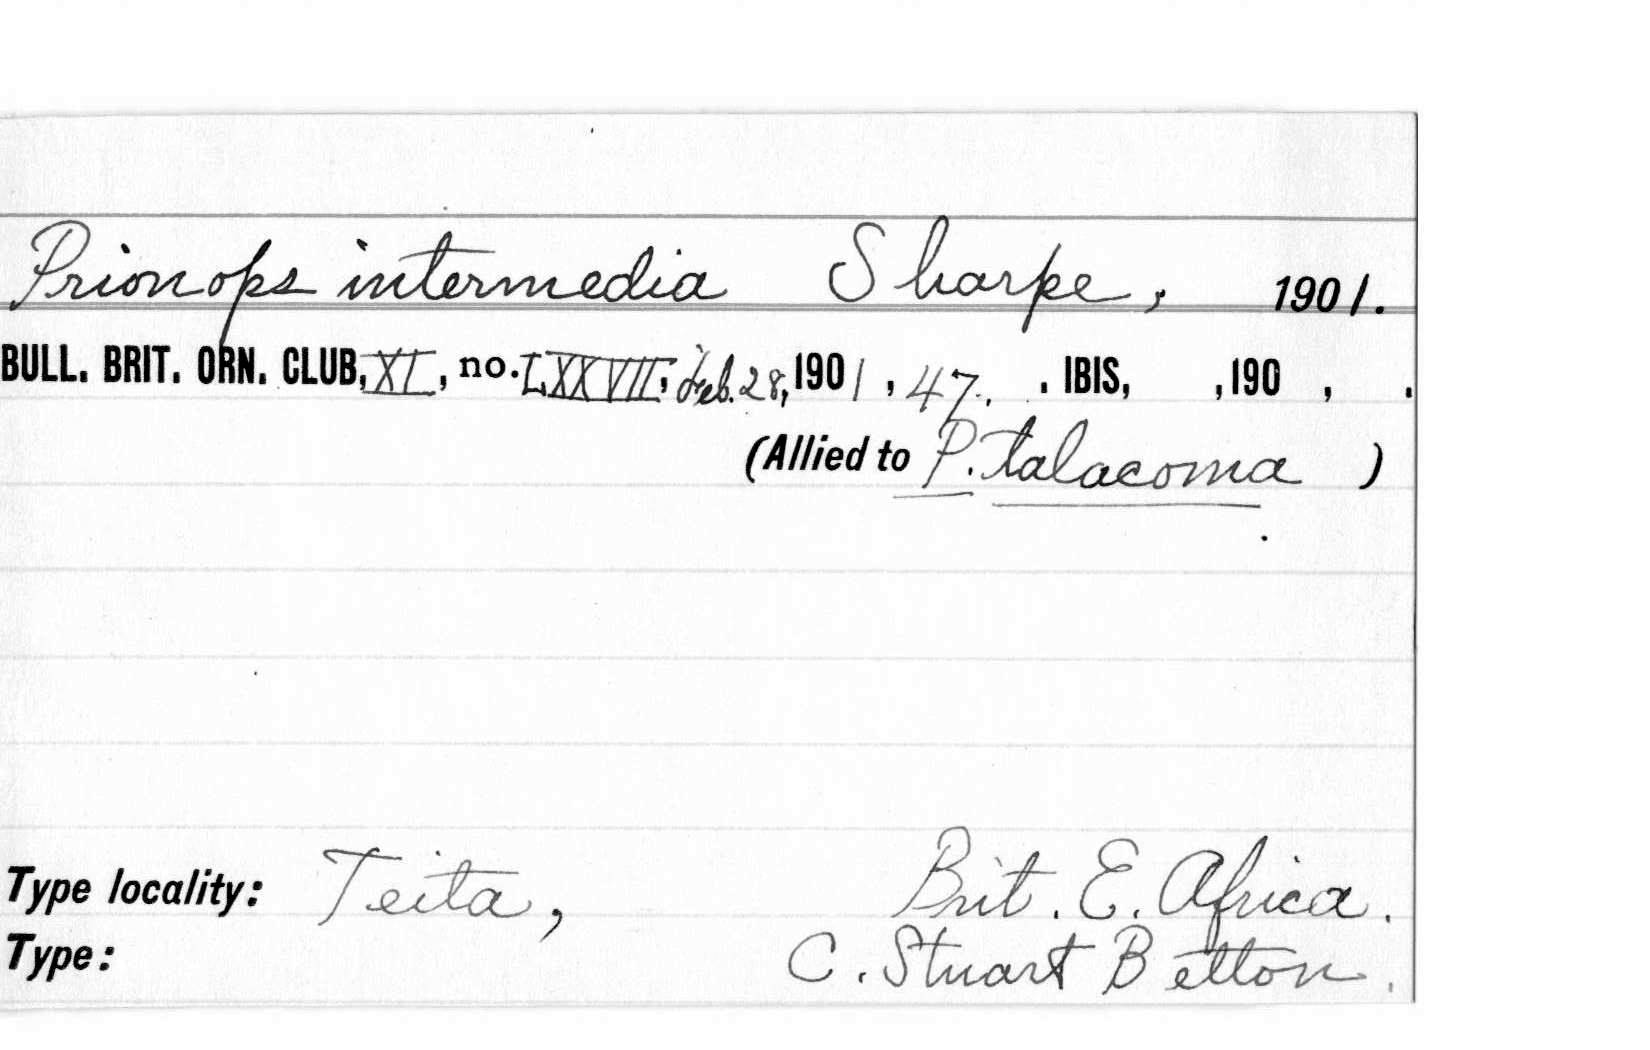 Prionops intermedia Sharpe, 1901.
BULL. BRIT. ORN. CLUB, XI, no. LXXVII, Feb. 28, 1901, 47. . IBIS, , 190 , .
(Allied to P. talacoma )
Type locality: Teita, Brit. E. Africa.
Type: C. Stuart Betton.